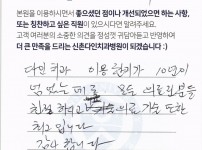 본원을 이용하시면서 좋으셨던 점이나 개선되었으면 하는 사항,
또는 칭찬하고 싶은 직원이 있으시다면 알려주세요.
고객 여러분의 소중한 의견을 정성껏 귀담아듣고 반영하여
더 큰 만족을 드리는 신촌다인치과병원이 되겠습니다 :)
다인 치과 이용한지가 10년이
넘었는데 모든 의료진분들
친절하시고 의료 기술 또한
최고입니다
감사합니다